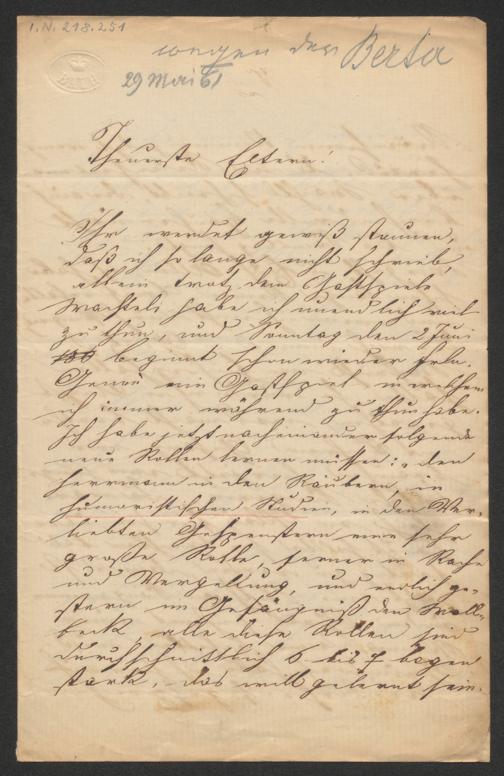 I.N. 218.251
wegen der Berta
29 Mai 61
BATH
Theuerste Eltern!
Ihr werdet gewiß staunen,
daß ich so lange nicht schrieb,
allein trotz dem Gastspiele
Wachtels habe ich unendlich viel
zu thun, und Sonntag den 2 Juni
beginnt schon wieder Frln.
ein Gastspiel in welchem
ich immer während zu thun habe.
Ich habe jetzt nacheinander folgende
neue Rollen lernen müssen: den
Herrmann in den Räubern, in
humoristischen Studien, in den Ver-
liebten Gespenstern eine sehr
große Rolle, ferner in Rache
und Vergeltung, und endlich ge-
stern im Gefängniß den Wall-
beck, alle diese Rollen sind
durchschnittlich 6 bis 7 bogen
stark, das will gelernt sein.